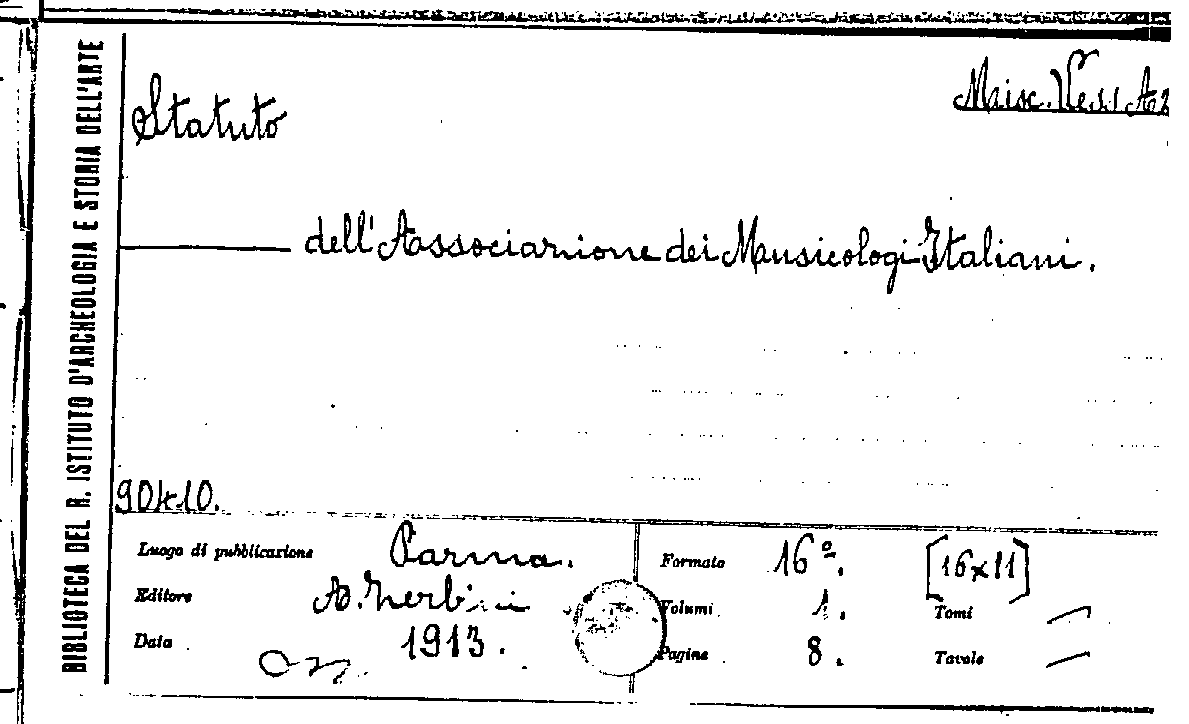 BIBLIOTECA DEL R. ISTITUTO D'ARCHEOLOGIA E STORIA DELL'ARTE
Misc. Vessi A2
Statuto
dell'Associazione dei Musicologi Italiani.
90410.
Luogo di pubblicazione Parma.
Editore A. Zerbini
Data 1913.
Formato 16º. [16x11]
Volumi 1. Tomi —
Pagine 8. Tavole —